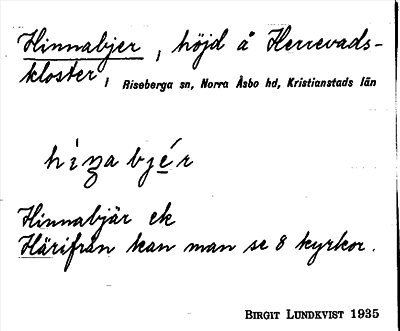 Hinnabjer, höjd å Herrevads-
kloster, Riseberga sn, Norra Åsbo hd, Kristianstads län
Hinnabjär ek
Härifrån kan man se 8 kyrkor.
BIRGIT LUNDKVIST 1935